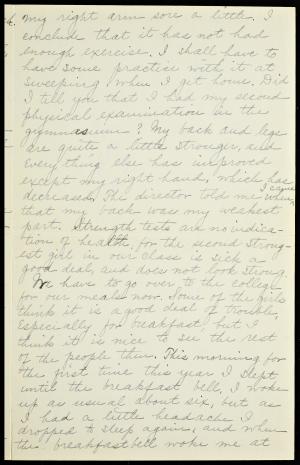 my right arm sore a little. I
conclude that it has not had
enough exercise. I shall have to
have some practice with it at
sweeping when I get home. Did
I tell you that I had my second
physical examination in the
gymnasium? My back and legs
are quite a little stronger, and
everything else has improved
except my right hand, which has
decreased. The director told me when I came
that my back was my weakest
part. Strength tests are no indica-
tion of health, for the second strong-
est girl in our class is sick a
good deal, and does not look strong.
We have to go over to the college
for our meals now. Some of the girls
think it is a good deal of trouble,
especially for breakfast, but I
think it is nice to see the rest
of the people then. This morning for
the first time this year I slept
until the breakfast bell. I woke
up as usual about six, but as
I had a little headache I
dropped to sleep again, and when
the breakfast bell woke me at